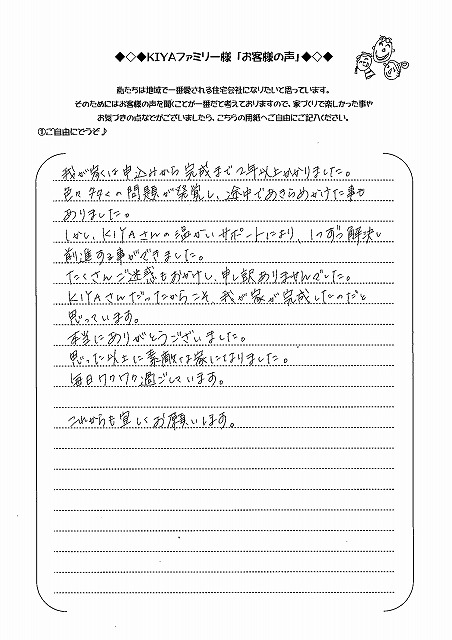 ◆◇◆KIYAファミリー様「お客様の声」◆◇◆
私たちは地域で一番愛される住宅会社になりたいと思っています。
そのためにはお客様の声を聞くことが一番だと考えておりますので、家づくりで楽しかった事や
お気づきの点などがございましたら、こちらの用紙へご自由にご記入ください。
①ご自由にどうぞ♪
我が家は申込みから完成まで2年以上かかりました。
色々多くの問題が発覚し、途中であきらめかけた事も
ありました。
しかし、KIYAさんの温かいサポートにより、1つずつ解決し
前進する事ができました。
たくさんご迷惑もおかけし、申し訳ありませんでした。
KIYAさんだったからこそ、我が家が完成したのだと
思っています。
本当にありがとうございました。
思った以上に素敵な家になりました。
毎日ワクワク過ごしています。
これからも宜しくお願いします。